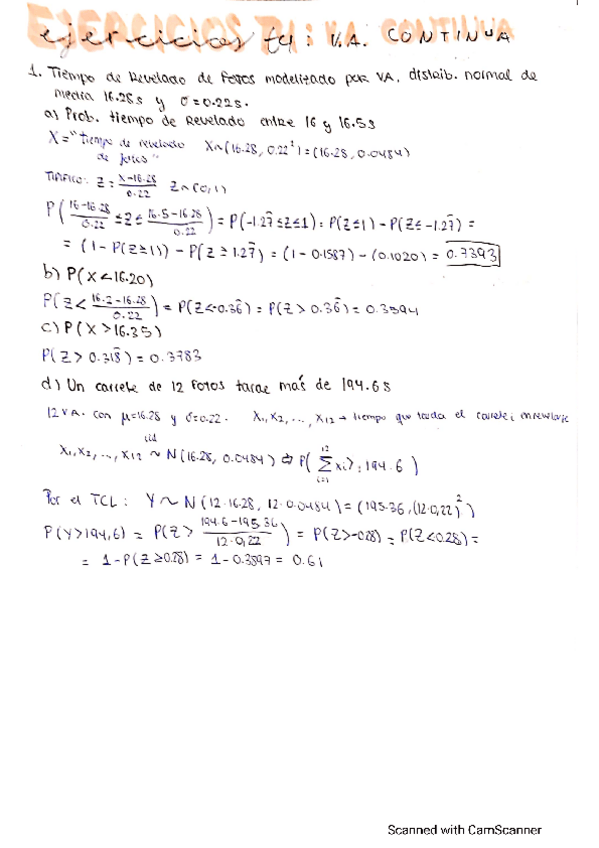 ejercicios t4: V.A. CONTINUA
1. Tiempo de Revelado de Fotos modelizado por VA. distrib. normal de
media 16.28s y σ=0.22s.
a) Prob. tiempo de Revelado entre 16 y 16.5s
X = "tiempo de revelado X~(16.28, 0.22²)=(16.28, 0.0484)
de fotos"
Tipifico: Z = x-16.28/0.22 Z~(0,1)
P(16-16.28/0.22 ≤ Z ≤ 16.5-16.28/0.22) = P(-1.27≤Z≤1) = P(Z≤1) - P(Z≤-1.27) =
= (1 - P(Z≥1)) - P(Z≥1.27) = (1 - 0.1587) - (0.1020) = 0.7393
b) P(X<16.20)
P(Z< 16.2-16.28/0.22) = P(Z<-0.36) = P(Z>0.36) = 0.3594
c) P(X>16.35)
P(Z>0.318) = 0.3783
d) Un carrete de 12 Fotos tarde más de 194.6s
12 VA. con μ=16.28 y σ=0.22. X₁, X₂, ..., X₁₂ → tiempo que tarda el carrete i en revelarse
iid
X₁, X₂, ..., X₁₂ ~ N(16.28, 0.0484) ⇒ P( Σ xi > 194.6 )
Por el TCL: Y ~ N(12·16.28, 12·0.0484) = (195.36, (12·0,22)²)
P(Y>194,6) = P(Z> 194.6-195.36/12·0,22) = P(Z>-0.28) = P(Z<0.28) =
= 1-P(Z≥0.28) = 1-0.3897 = 0.61
Scanned with CamScanner